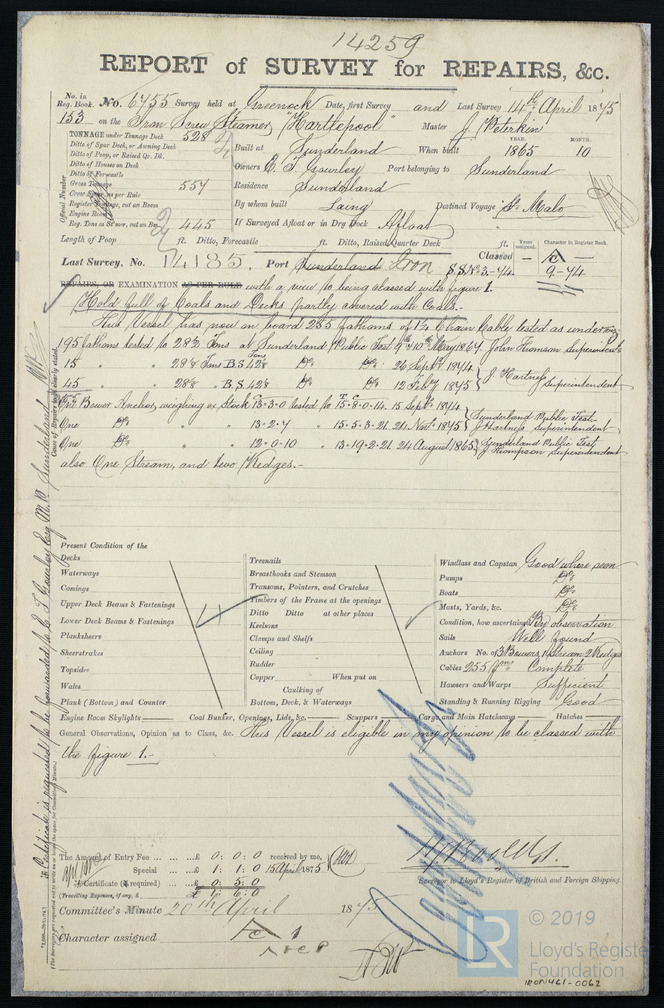 14259
REPORT of SURVEY for REPAIRS, &c.
No. in Reg. Book. No. 6755 Survey held at Greenock Date, first Survey and Last Survey 14th April 1875
153 on the Iron Screw Steamer "Hartlepool" Master J. Peterkin
TONNAGE under Tonnage Deck 528
Ditto of Spar, or Awning Deck
Ditto of Poop, or Raised Qr. Dk.
Ditto of Houses on Deck
Ditto of Forecastle
Gross Tonnage 557
Crew Space as per Rule
Register Tonnage, cut on Beam
Engine Room
Reg. Tons as Sur er, cut on Beam 445
Official Number
Built at Sunderland When built YEAR. 1865 MONTH. 10
Owners E. T. Gourley Port belonging to Sunderland
Residence Sunderland
By whom built Laing Destined Voyage St. Malo
If Surveyed Afloat or in Dry Dock Afloat
Length of Poop ft. Ditto, Forecastle ft. Ditto, Raised Quarter Deck ft.
Last Survey, No. 14185. Port Sunderland Iron S.S. No. 3-74 Classed Years assigned. — Character in Register Book. A 9-74
REPAIRS, OR EXAMINATION AS PER RULE with a view to being classed with figure 1.
Hold full of Coals and Decks partly covered with Coals.
This Vessel has now on board 255 fathoms of 1 4/16 Chain Cable tested as under viz
195 fathoms tested to 282 Tons at Sunderland Public Test 9th & 10th May 1867 John Thomson Superintendent
15 " " 288 Tons B.S. 428 Tons Do Do 26 Septr 1874 } J. Hartness Superintendent
45 " " 288 " B.S. 428 Do Do 12 Feby 1875
255
One Bower Anchor, weighing ex Stock 13-3-0 tested to 15-8-0-14. 15 Septr 1874 } Sunderland Public Test
One Do " " 13-2-7 " 15-5-3-21. 21 Novr 1875 J. Hartness Superintendent
One Do " " 12-0-10 " 13-19-2-21. 24 August 1865 } Sunderland Public Test J. Thompson Superintendent
also One Stream, and two Kedges.-
Present Condition of the
Decks
Waterways
Comings
Upper Deck Beams & Fastenings
Lower Deck Beams & Fastenings
Planksheers
Sheerstrakes
Topsides
Wales
Plank (Bottom) and Counter
Treenails
Breasthooks and Stemson
Transoms, Pointers, and Crutches
Timbers of the Frame at the openings
Ditto Ditto at other places
Keelsons
Clamps and Shelfs
Ceiling
Rudder
Copper When put on
Caulking of
Bottom, Deck, & Waterways
Windlass and Capstan Good where seen
Pumps Do
Boats Do
Masts, Yards, &c. Do
Condition, how ascertained By observation
Sails Well found
Anchors No. of 3 Bowers 1 Stream 2 Kedges
Cables 255 fms Complete
Hawsers and Warps Sufficient
Standing & Running Rigging Good
Engine Room Skylights — Coal Bunker, Openings, Lids, &c. — Scuppers — Cargo and Main Hatchways — Hatches —
General Observations, Opinion as to Class, &c. This Vessel is eligible in my opinion to be classed with
the figure 1.-
The Amount of Entry Fee ... ... £ 0 : 0 : 0 received by me,
Special ... £ 1 : 1 : 0 15 April 1875
Certificate (if required) 0 : 5 : 0
(Travelling Expenses, if any, £ ) £ 1 : 6 : 0
Surveyor to Lloyd's Register of British and Foreign Shipping.
Committee's Minute 20th April 1875
Character assigned A 1
A & C P
Certificate is requested to be forwarded to E. T. Gourley Esq M.P. Sunderland
© 2019
LR
Lloyd's Register
Foundation
IRON461-0062